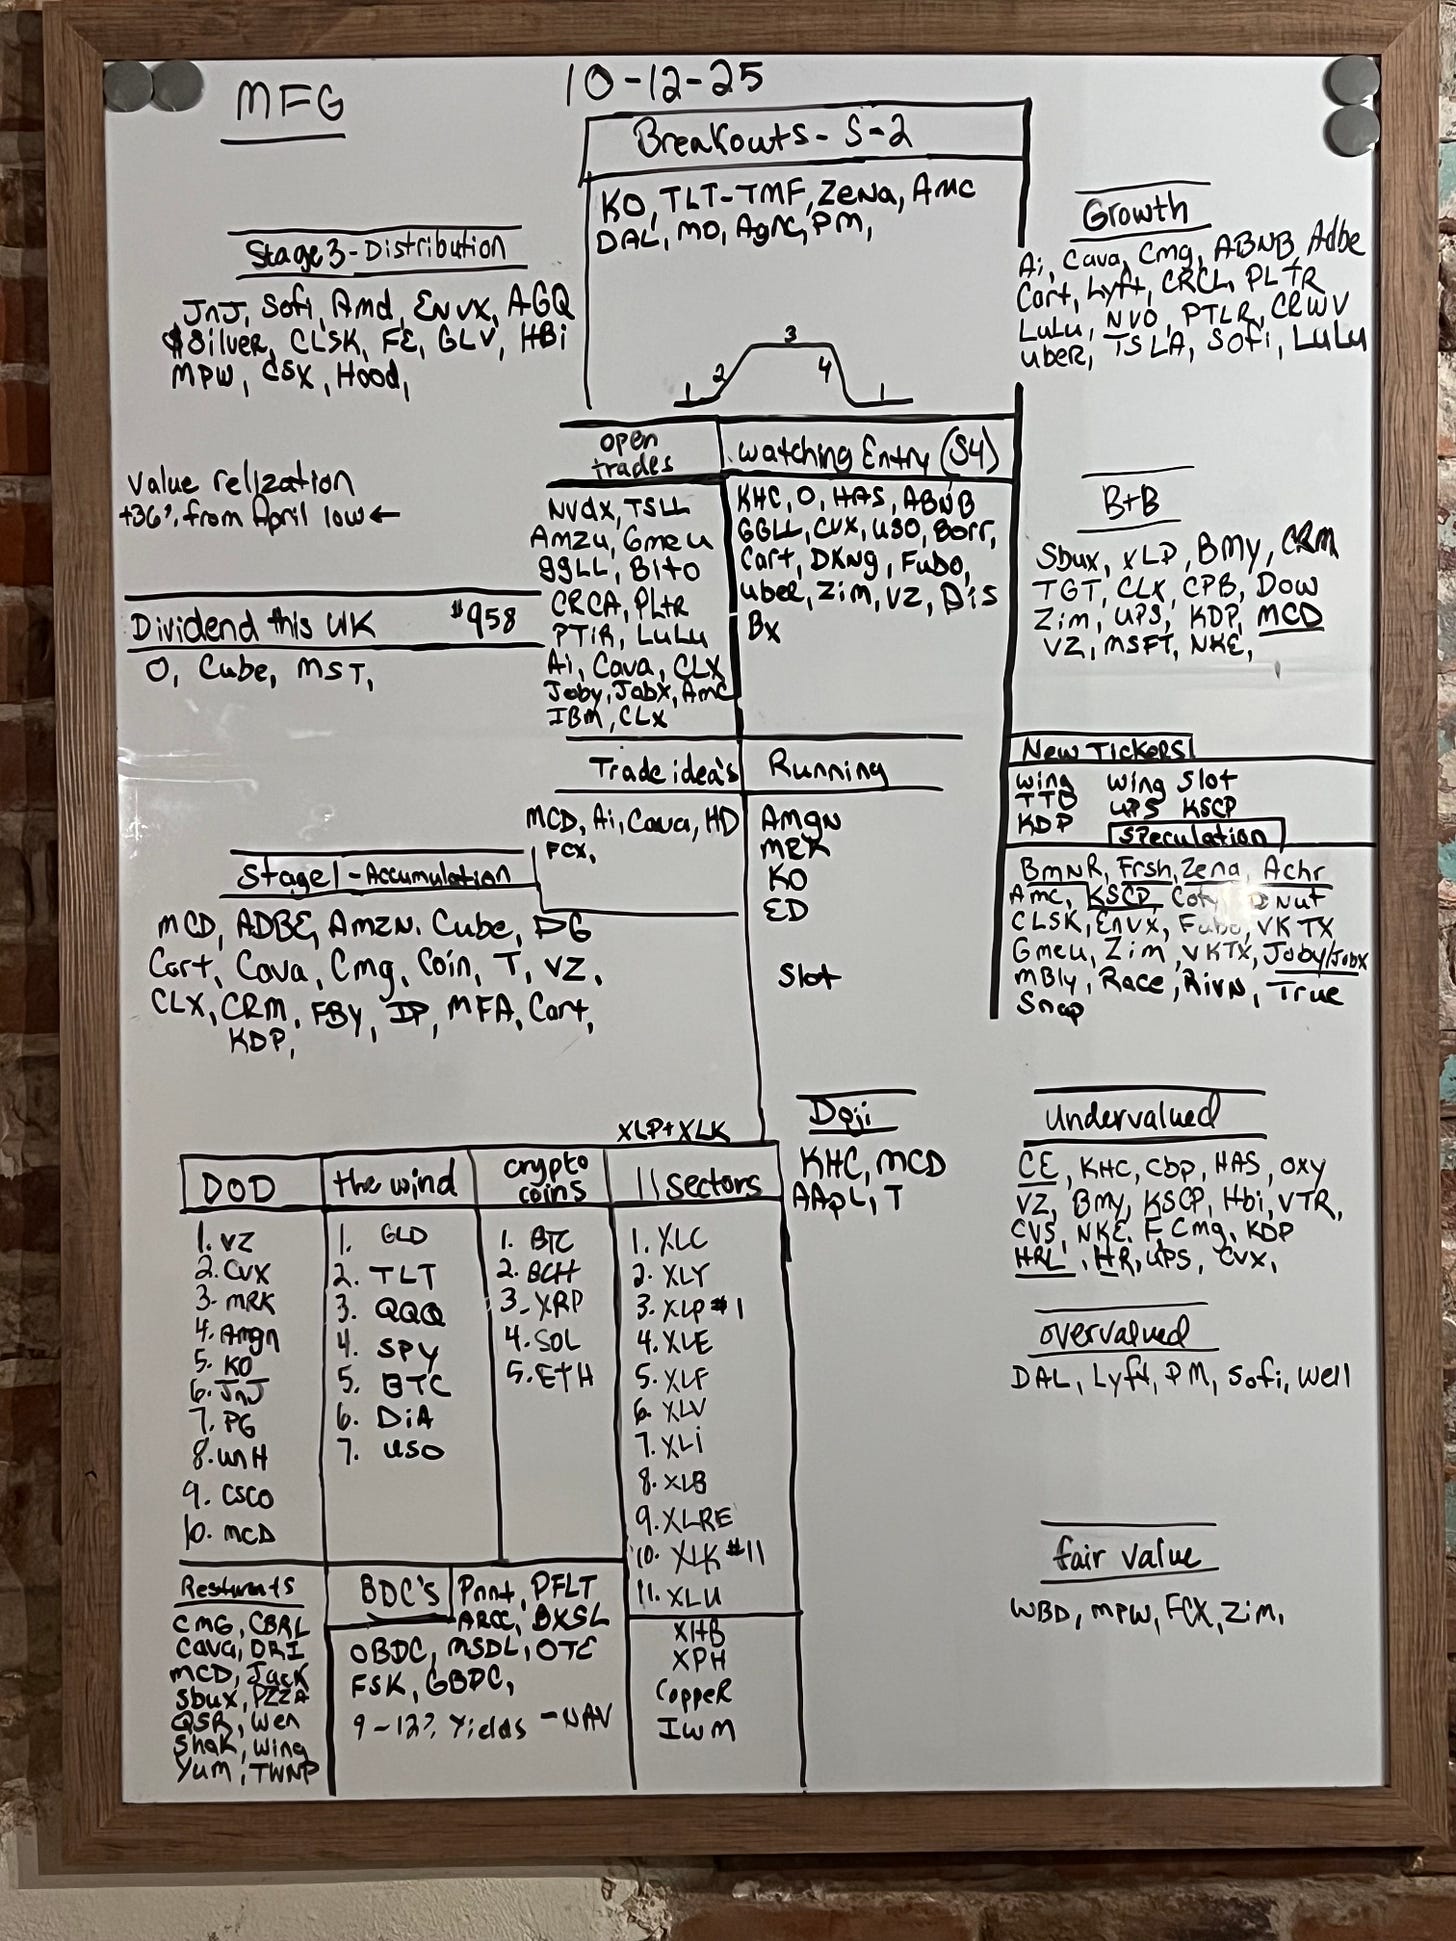 MFG
10-12-25
Breakouts - S-2
KO, TLT-TMF, Zena, Amc
DAL, MO, Agnc, PM,
3
2
4
1
1
Stage 3 - Distribution
JnJ, Sofi, Amd, Envx, AGQ
$Silver, CLSK, FE, GLV, HBi
MPW, CSX, Hood,
Value relization
+36% from April low ←
Dividend this WK $958
O, Cube, MST,
open
trades
Nvdx, TSLL
Amzu, Gmeu
ggLL, Bito
CRCA, PLtr
PTIR, LuLu
Ai, Cava, CLX
Joby, Jobx, Amc
IBm, CLX
Watching Entry (S4)
KHC, O, HAS, ABNB
GGLL, CVX, USO, Borr,
Cart, DKng, Fubo,
uber, Zim, VZ, Dis
Bx
Growth
Ai, Cava, Cmg, ABNB, Adbe
Cart, Lyft, CRCL, PLTR
LuLu, NVO, PTLR, CRWV
uber, TSLA, Sofi, LuLu
B+B
Sbux, XLP, Bmy, CRM
TGT, CLX, CPB, Dow
Zim, UPS, KDP, MCD
VZ, MSFT, NKE,
Trade idea's
MCD, Ai, Cava, HD
FCX,
Running
Amgn
MRK
KO
ED
Slot
New Tickers
wing wing Slot
TTD UPS KSCP
KDP
Speculation
BmNR, Frsh, Zena, Achr
Amc, KSCP Coty Dnut
CLSK, Envx, Fubo, VKTX
Gmeu, Zim, VKTX, Joby/Jobx
mBly, Race, Rivn, True
Snap
Stage 1 - Accumulation
MCD, ADBE, Amzn. Cube, DG
Cart, Cava, Cmg, Coin, T, VZ,
CLX, CRM, FBy, IP, MFA, Cart,
KDP,
Doji
KHC, MCD
AApL, T
Undervalued
CE, KHC, Cbp, HAS, OXY
VZ, Bmy, KSCP, Hbi, VTR,
CVS, NKE, F, Cmg, KDP
HRL, HR, UPS, CVX,
overvalued
DAL, Lyft, PM, Sofi, Well
fair value
WBD, MPW, FCX, Zim,
DOD
1. VZ
2. CVX
3. MRK
4. Amgn
5. KO
6. JnJ
7. PG
8. UnH
9. CSCO
10. MCD
the wind
1. GLD
2. TLT
3. QQQ
4. SPY
5. BTC
6. DiA
7. USO
crypto
coins
1. BTC
2. BCH
3. XRP
4. SOL
5. ETH
XLP + XLK
11 sectors
1. XLC
2. XLY
3. XLP #1
4. XLE
5. XLF
6. XLV
7. XLi
8. XLB
9. XLRE
10. XLK #11
11. XLU
XHB
XPH
Copper
IWM
Resturants
CMG, CBRL
Cava, DRI
MCD, Jack
Sbux, PZZA
QSR, Wen
Shak, Wing
Yum, TWNP
BDC's
Pnnt, PFLT
ARCC, BXSL
OBDC, MSDL, OTE
FSK, GBDC,
9-12% Yields - NAV